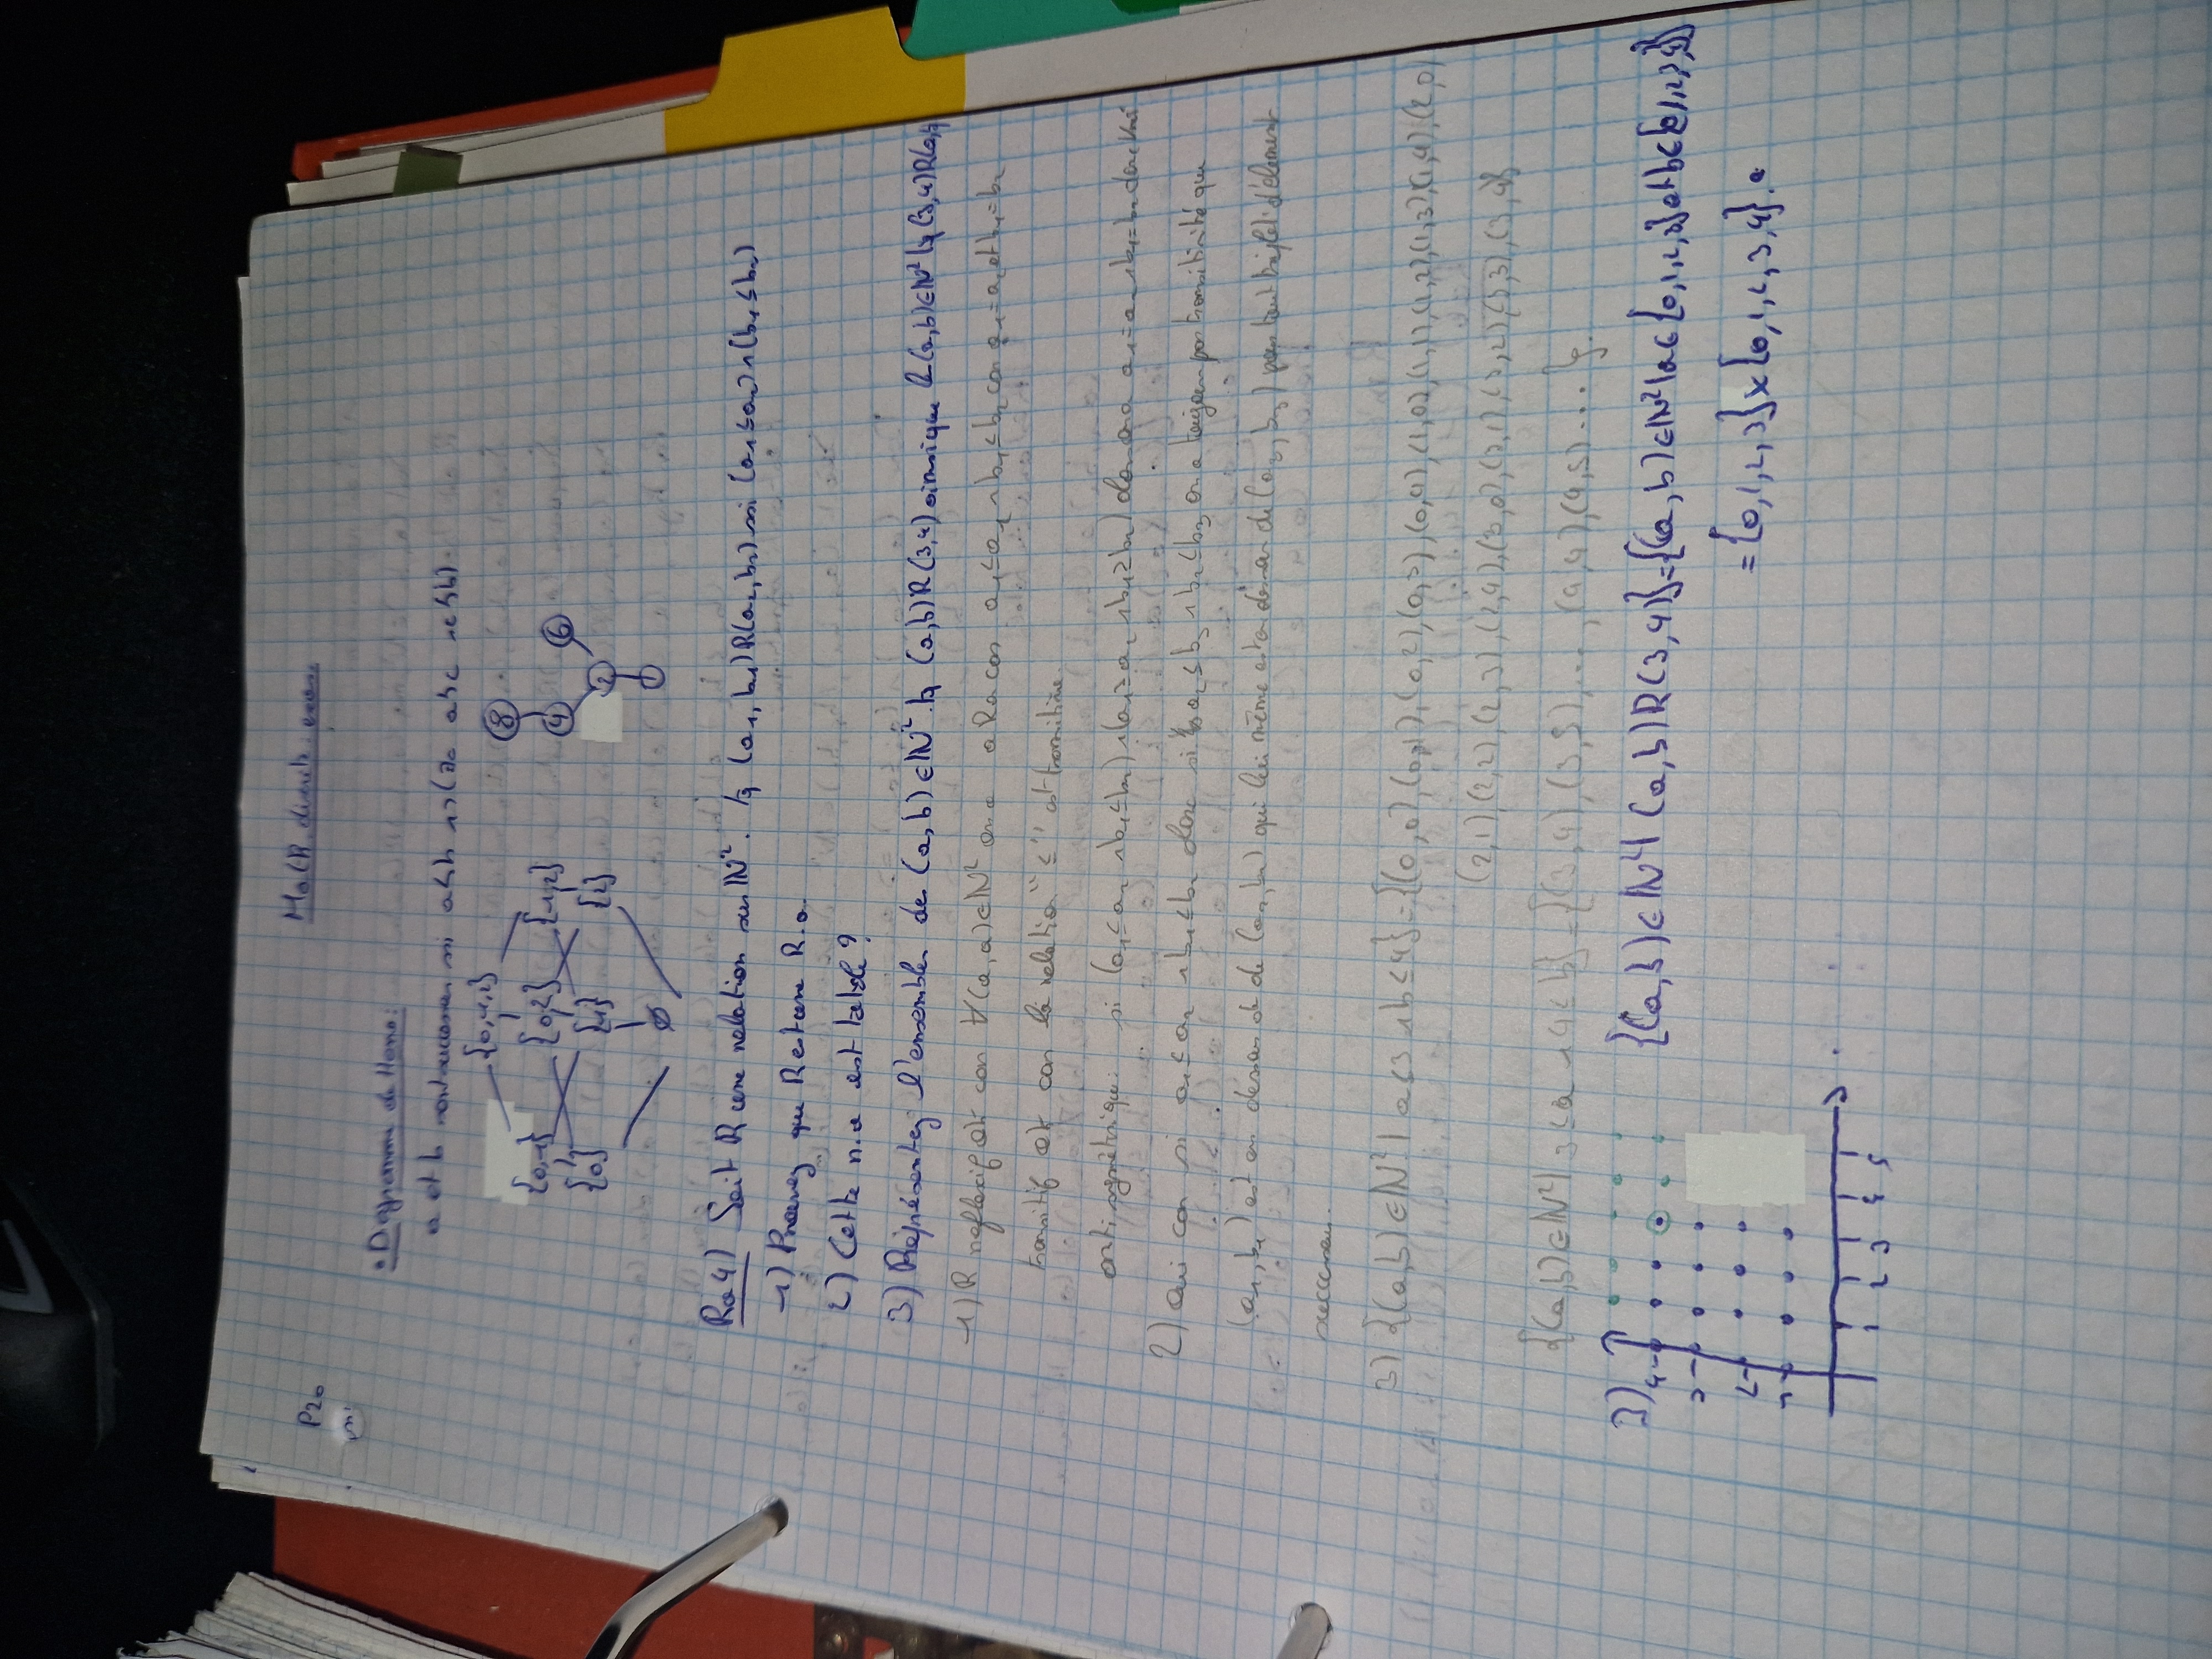 P20
Math discrète
• Diagramme de Hasse:
a et b sont successeur ssi a≤b ∧ ¬(∃c a≤c ∧ c≤b).
{0,1,2}
{0,1} {0,2} {1,2}
{0} {1} {2}
∅
8
4 6
2
Ra 4) Soit R une relation sur ℕ². tq (a₁, b₁)R(a₂, b₂) ssi (a₁≤a₂)∧(b₁≤b₂)
1) Prouvez que R est une R.o.
2) Cette r.o est totale?
3) Représentez l'ensembles des (a,b)∈ℕ² tq (a,b)R(3,4) ainsi que les (a,b)∈ℕ² tq (3,4)R(a,b)
1) R reflexif ok car ∀(a,a)∈ℕ² on a aRa car a₁≤a₂ ∧ b₁≤b₂ car a₁=a₂ et b₁=b₂
transitif ok car la relation "≤" est transitive.
antisymétrique: si (a₁≤a₂ ∧b₁≤b₂)∧(a₁≥a₂ ∧b₁≥b₂) alors on a a₁=a₂ ∧b₁=b₂ donc Vrai
2) oui car si a₁≤a₂ ∧b₁≤b₂ donc si a₂≤b₃ ∧b₂≤b₃ on a toujours par transitivité que
(a₁,b₁) est en dessous de (a₂,b₂) qui lui même est en dessous de (a₃,b₃) pour tout triplet d'élément
successeur.
3) {(a,b)∈ℕ²| a≤3 ∧b≤4}={(0,0),(0,1),(0,2),(0,3),(0,4),(1,0),(1,1),(1,2),(1,3),(1,4),(2,0)
(2,1),(2,2),(2,3),(2,4),(3,0),(3,1),(3,2),(3,3),(3,4)}
{(a,b)∈ℕ²| 3≤a ∧4≤b}={(3,4),(3,5),...,(4,4),(4,5)...}.
3) {(a,b)∈ℕ²| (a,b)R(3,4)}={(a,b)∈ℕ²|a∈{0,1,2,3} et b∈{0,1,2,3,4}}
={0,1,2,3}×{0,1,2,3,4}.
4
3
2
1
1 2 3 4 5